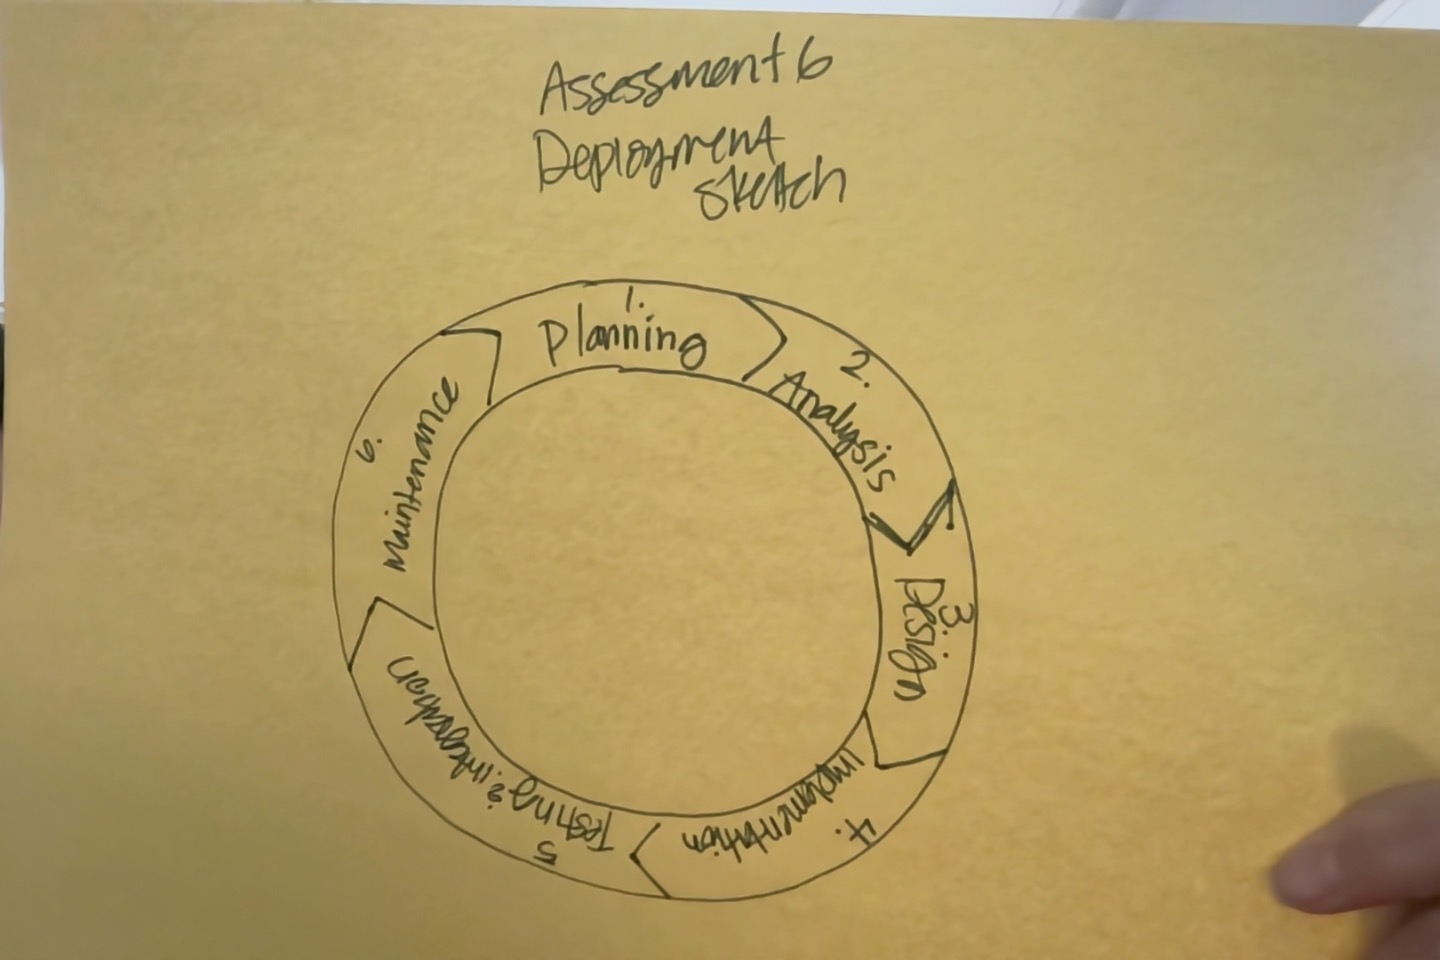 Assessment 6
Deployment
Sketch
1.
Planning
2.
Analysis
3.
Design
4.
Implementation
5
Testing & integration
6.
Maintenance